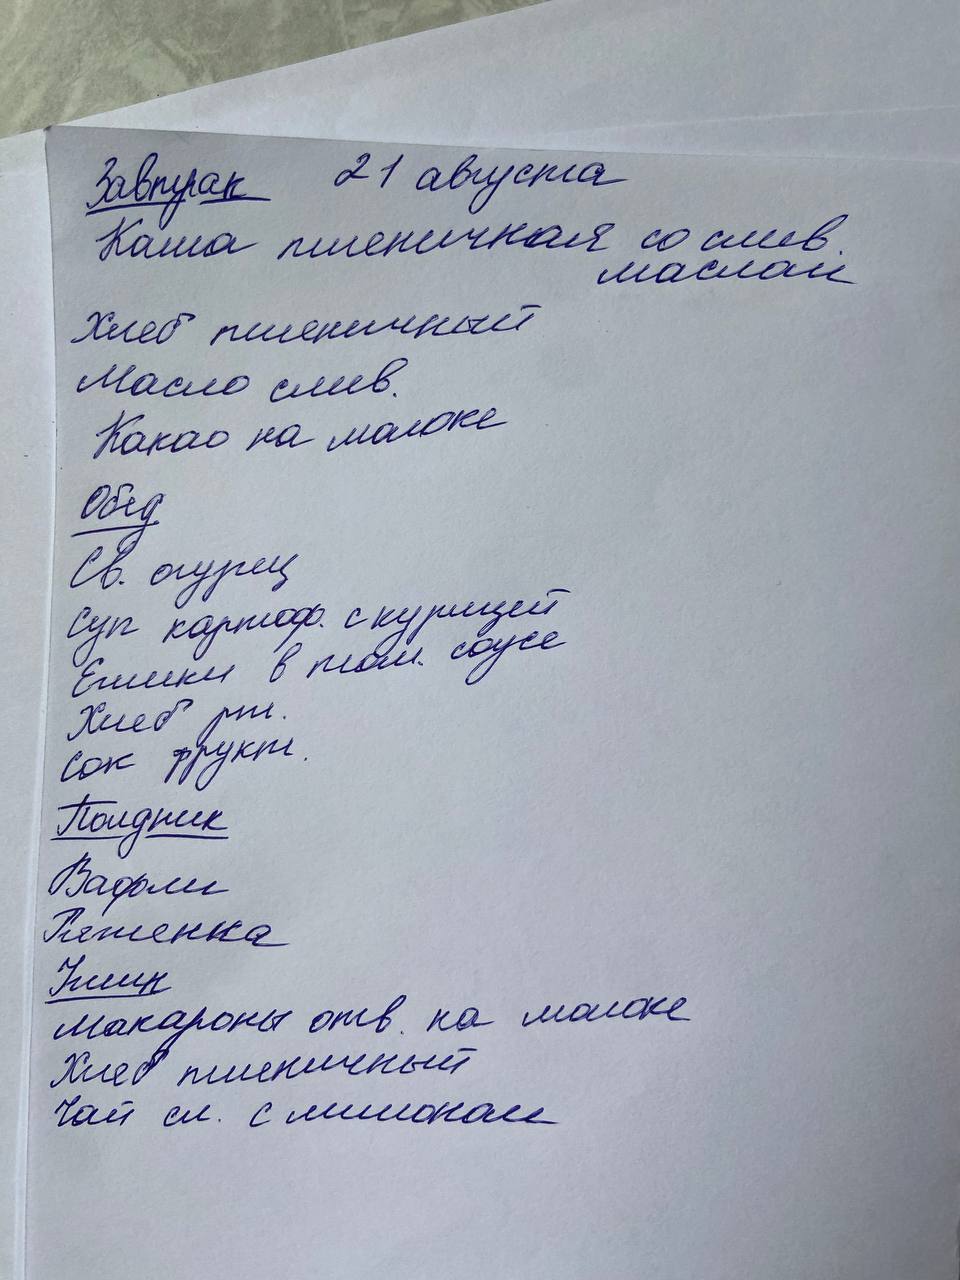 Завтрак 21 августа
Каша пшеничная со слив.
маслом
Хлеб пшеничный
Масло слив.
Какао на молоке
Обед
Св. огурец
Суп картоф. с курицей
Ёжики в том. соусе
Хлеб рж.
Сок фрукт.
Полдник
Вафли
Ряженка
Ужин
Макароны отв. на молоке
Хлеб пшеничный
Чай сл. с лимоном